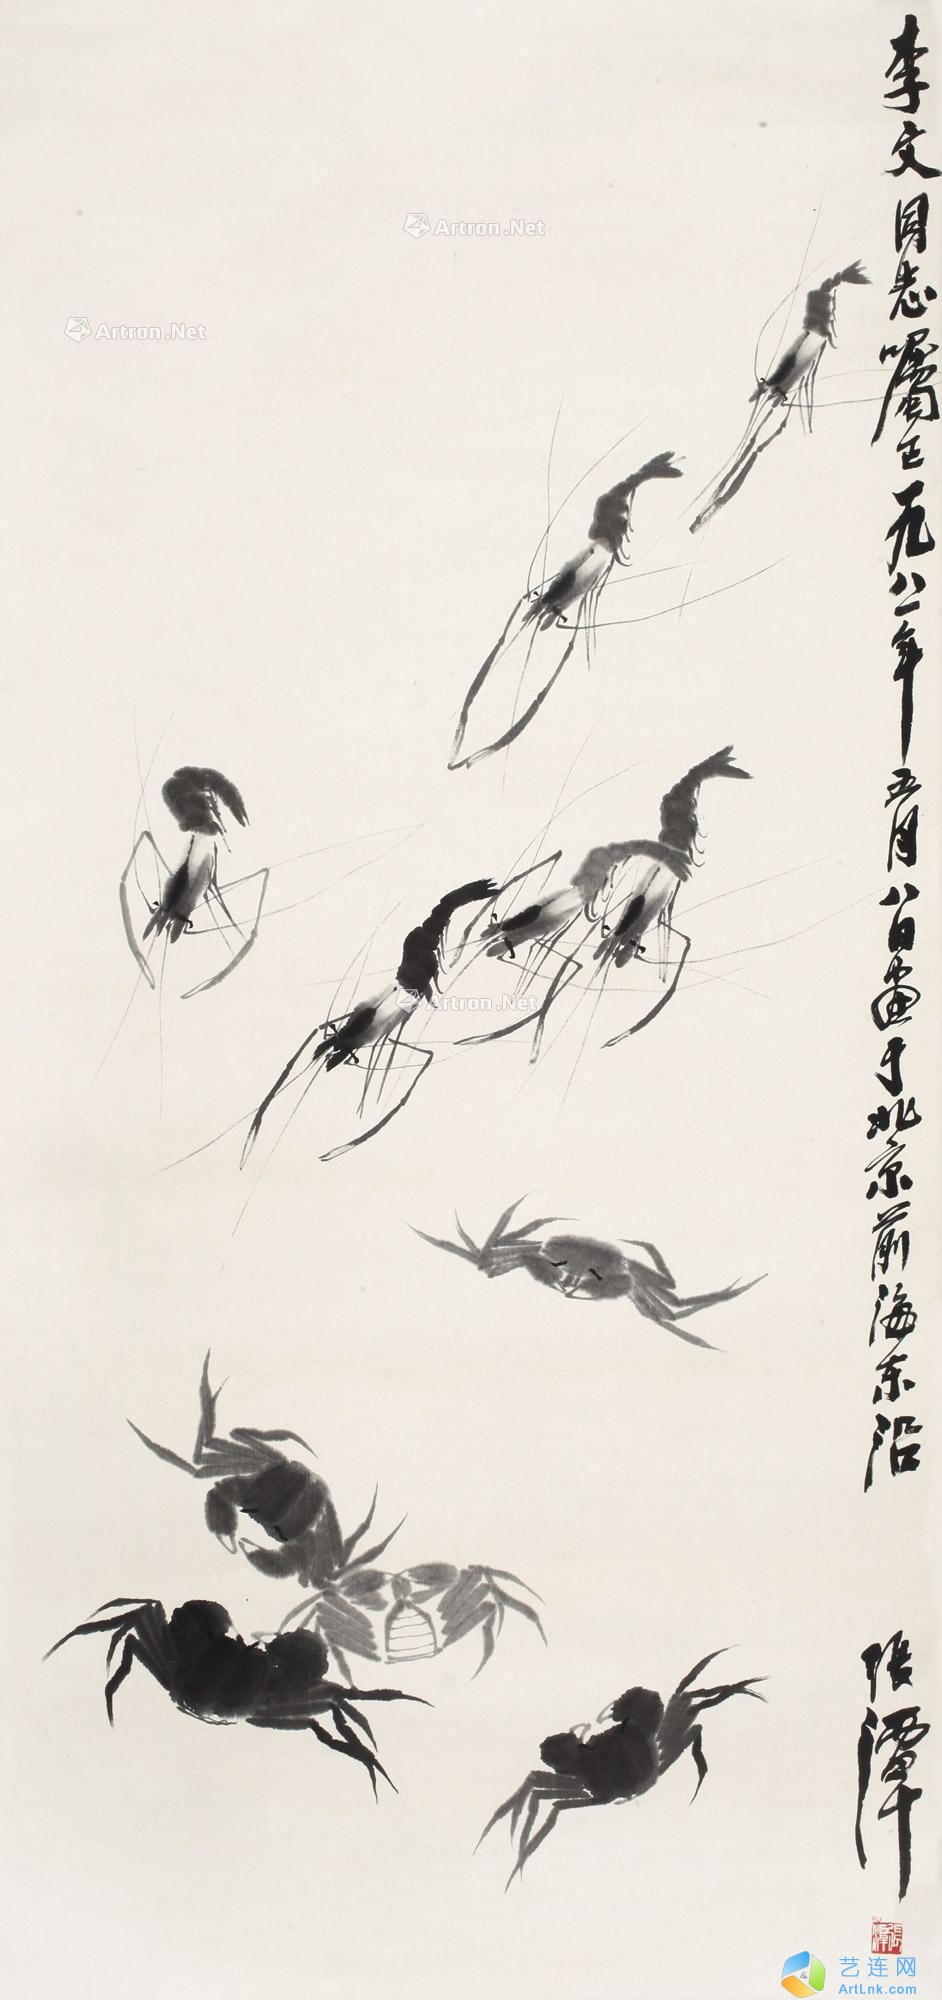 李文同志嘱正一九八一年五月八日画于北京前海东沿
张潭
张潭
Artron.Net
Artron.Net
Artron.Net
艺连网
ArtLnk.com